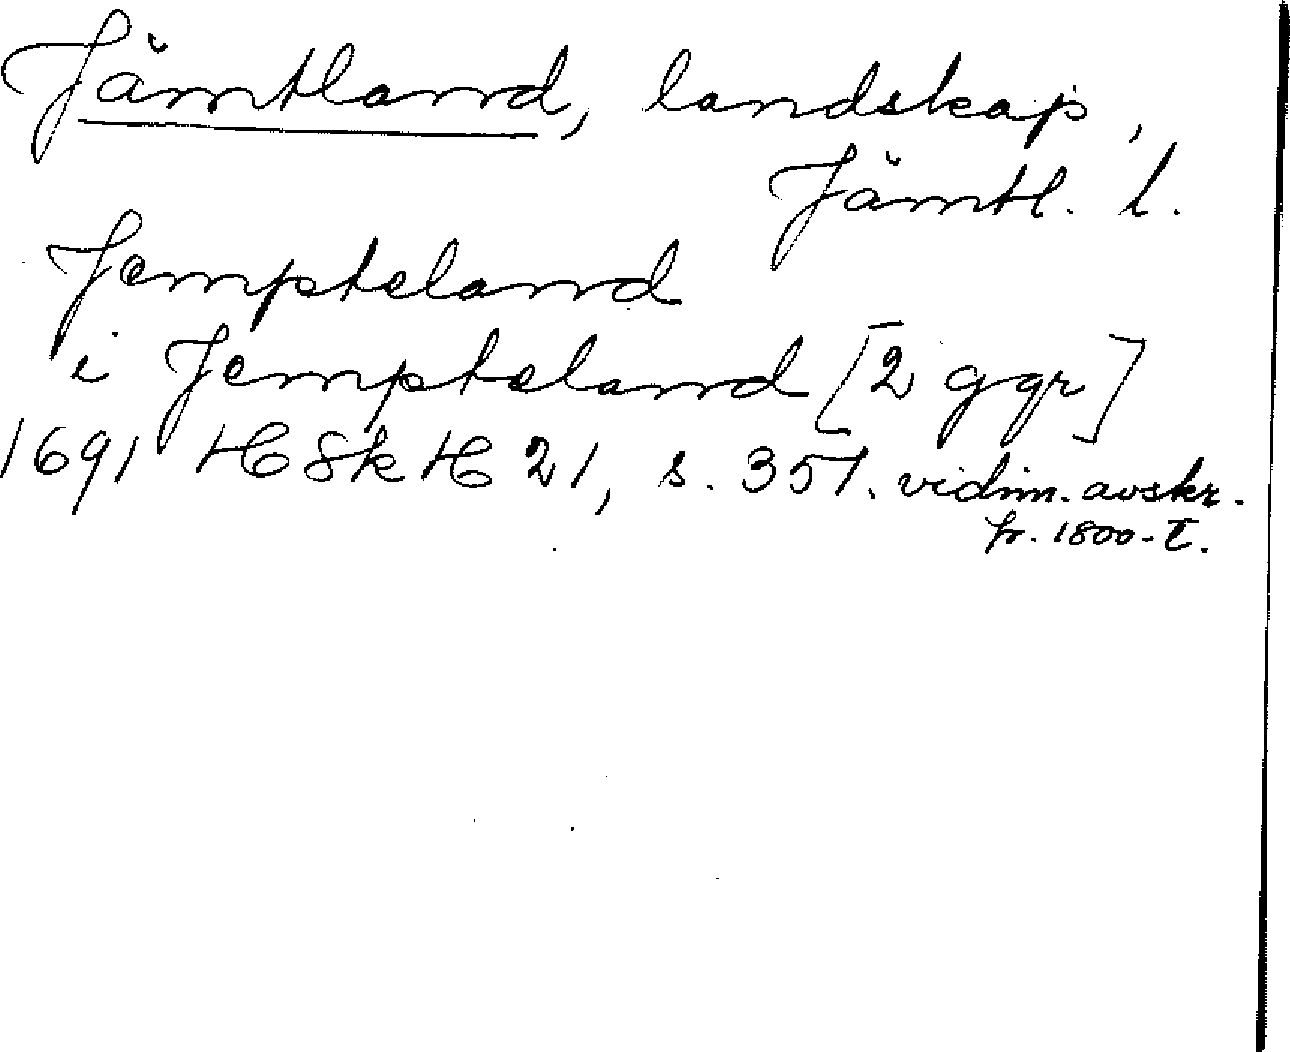 Jämtland, landskap,
Jämtl. l.
Jempteland
i Jempteland [2 ggr]
1691 HSkH 21, s. 357. vidim. avskr.
fr. 1800-t.